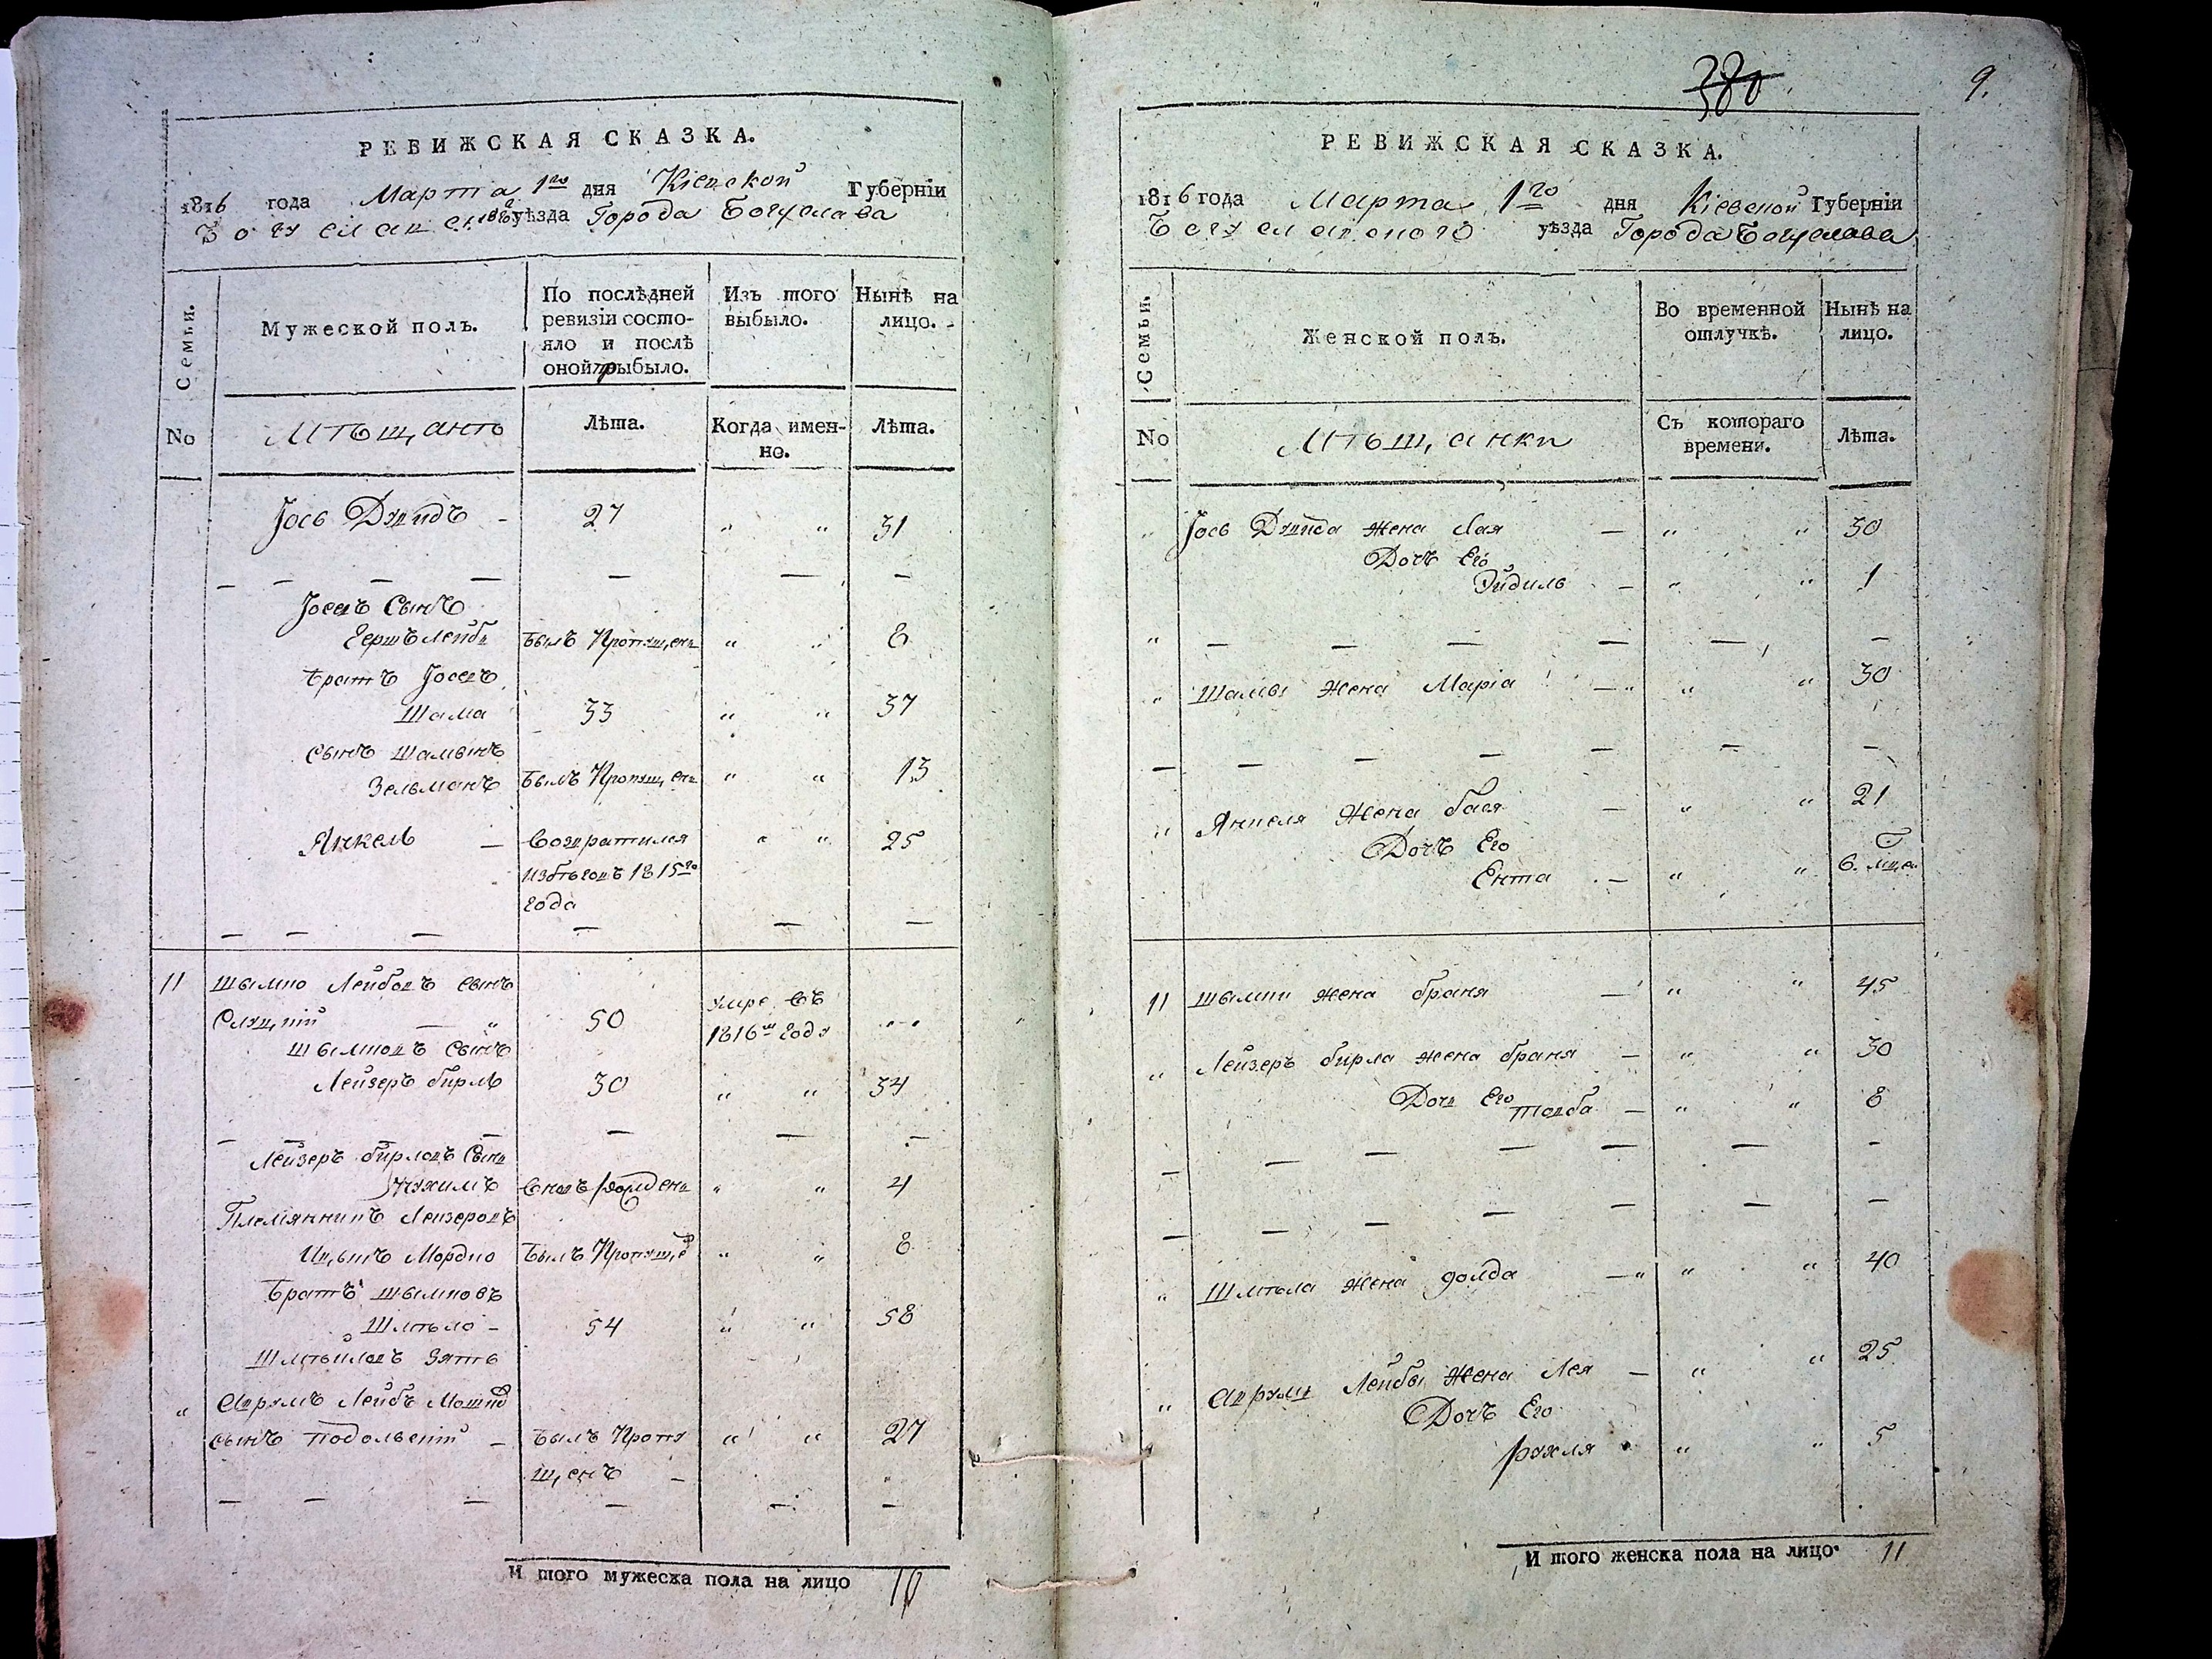 РЕВИЖСКАЯ СКАЗКА.
1816 года Марта 1го дня Кіевской Губерніи
Богуславскаго уѣзда Города Богуслава
Семьи.
Мужеской полъ.
По послѣдней
ревизіи состо-
яло и послѣ
оной прыбыло.
Изъ того
выбыло.
Нынѣ на
лицо.
No
Мѣщанъ
Лѣта.
Когда имен-
но.
Лѣта.
Іось Дувидъ - 27 " " 31
Іосевъ Сынъ
Гершъ Лейба Былъ Пропущенъ " " 8
Братъ Іосевъ
Шама 33 " " 37
Сынъ Шамынъ
Зельманъ Былъ Пропущенъ " " 13
Янкель - Возвратился " " 25
Избѣговъ 1815го
года
11 Шымко Лейбовъ сынъ
Слуцкій 50 умре въ
1816м году
Шымковъ Сынъ
Лейзеръ Бирль 30 " " 34
Лейзеръ Бирловъ Сынъ
Нухимъ Вновьрожденъ " " 4
Племянникъ Лейзеровъ
Ицыкъ Мордко Былъ Пропуще " " 8
Братъ Шымковъ
Шмѣло - 54 " " 58
Шмѣиловъ Зять
" Аврумъ Лейбъ Мошков
сынъ Подольскій - Былъ Пропу " " 27
щенъ -
И того мужеска пола на лицо 10
380
9.
РЕВИЖСКАЯ СКАЗКА.
1816 года Марта 1го дня Кіевской Губерніи
Богуславского уѣзда Города Богуслава
Семьи.
Женской полъ.
Во временной
отлучкѣ.
Нынѣ на
лицо.
No
Мѣщанки
Съ котораго
времени.
Лѣта.
" Іось Дувида жена Хая - " " 30
Дочъ Его
Эйдиль - " " 1
" Шамы жена Марія - " " 30
" Янкеля Жена Бася - " " 21
Дочъ Его
Ента - " " 6. мца
11 Шымки жена Браня - " " 45
" Лейзеръ Бирла жена Браня - " " 30
Дочь Его Товба - " " 8
" Шмѣла жена Голда - " " 40
" Аврума Лейбы Жена Лея - " " 25
Дочъ Его
Рухля " " 5
И того женска пола на лицо. 11